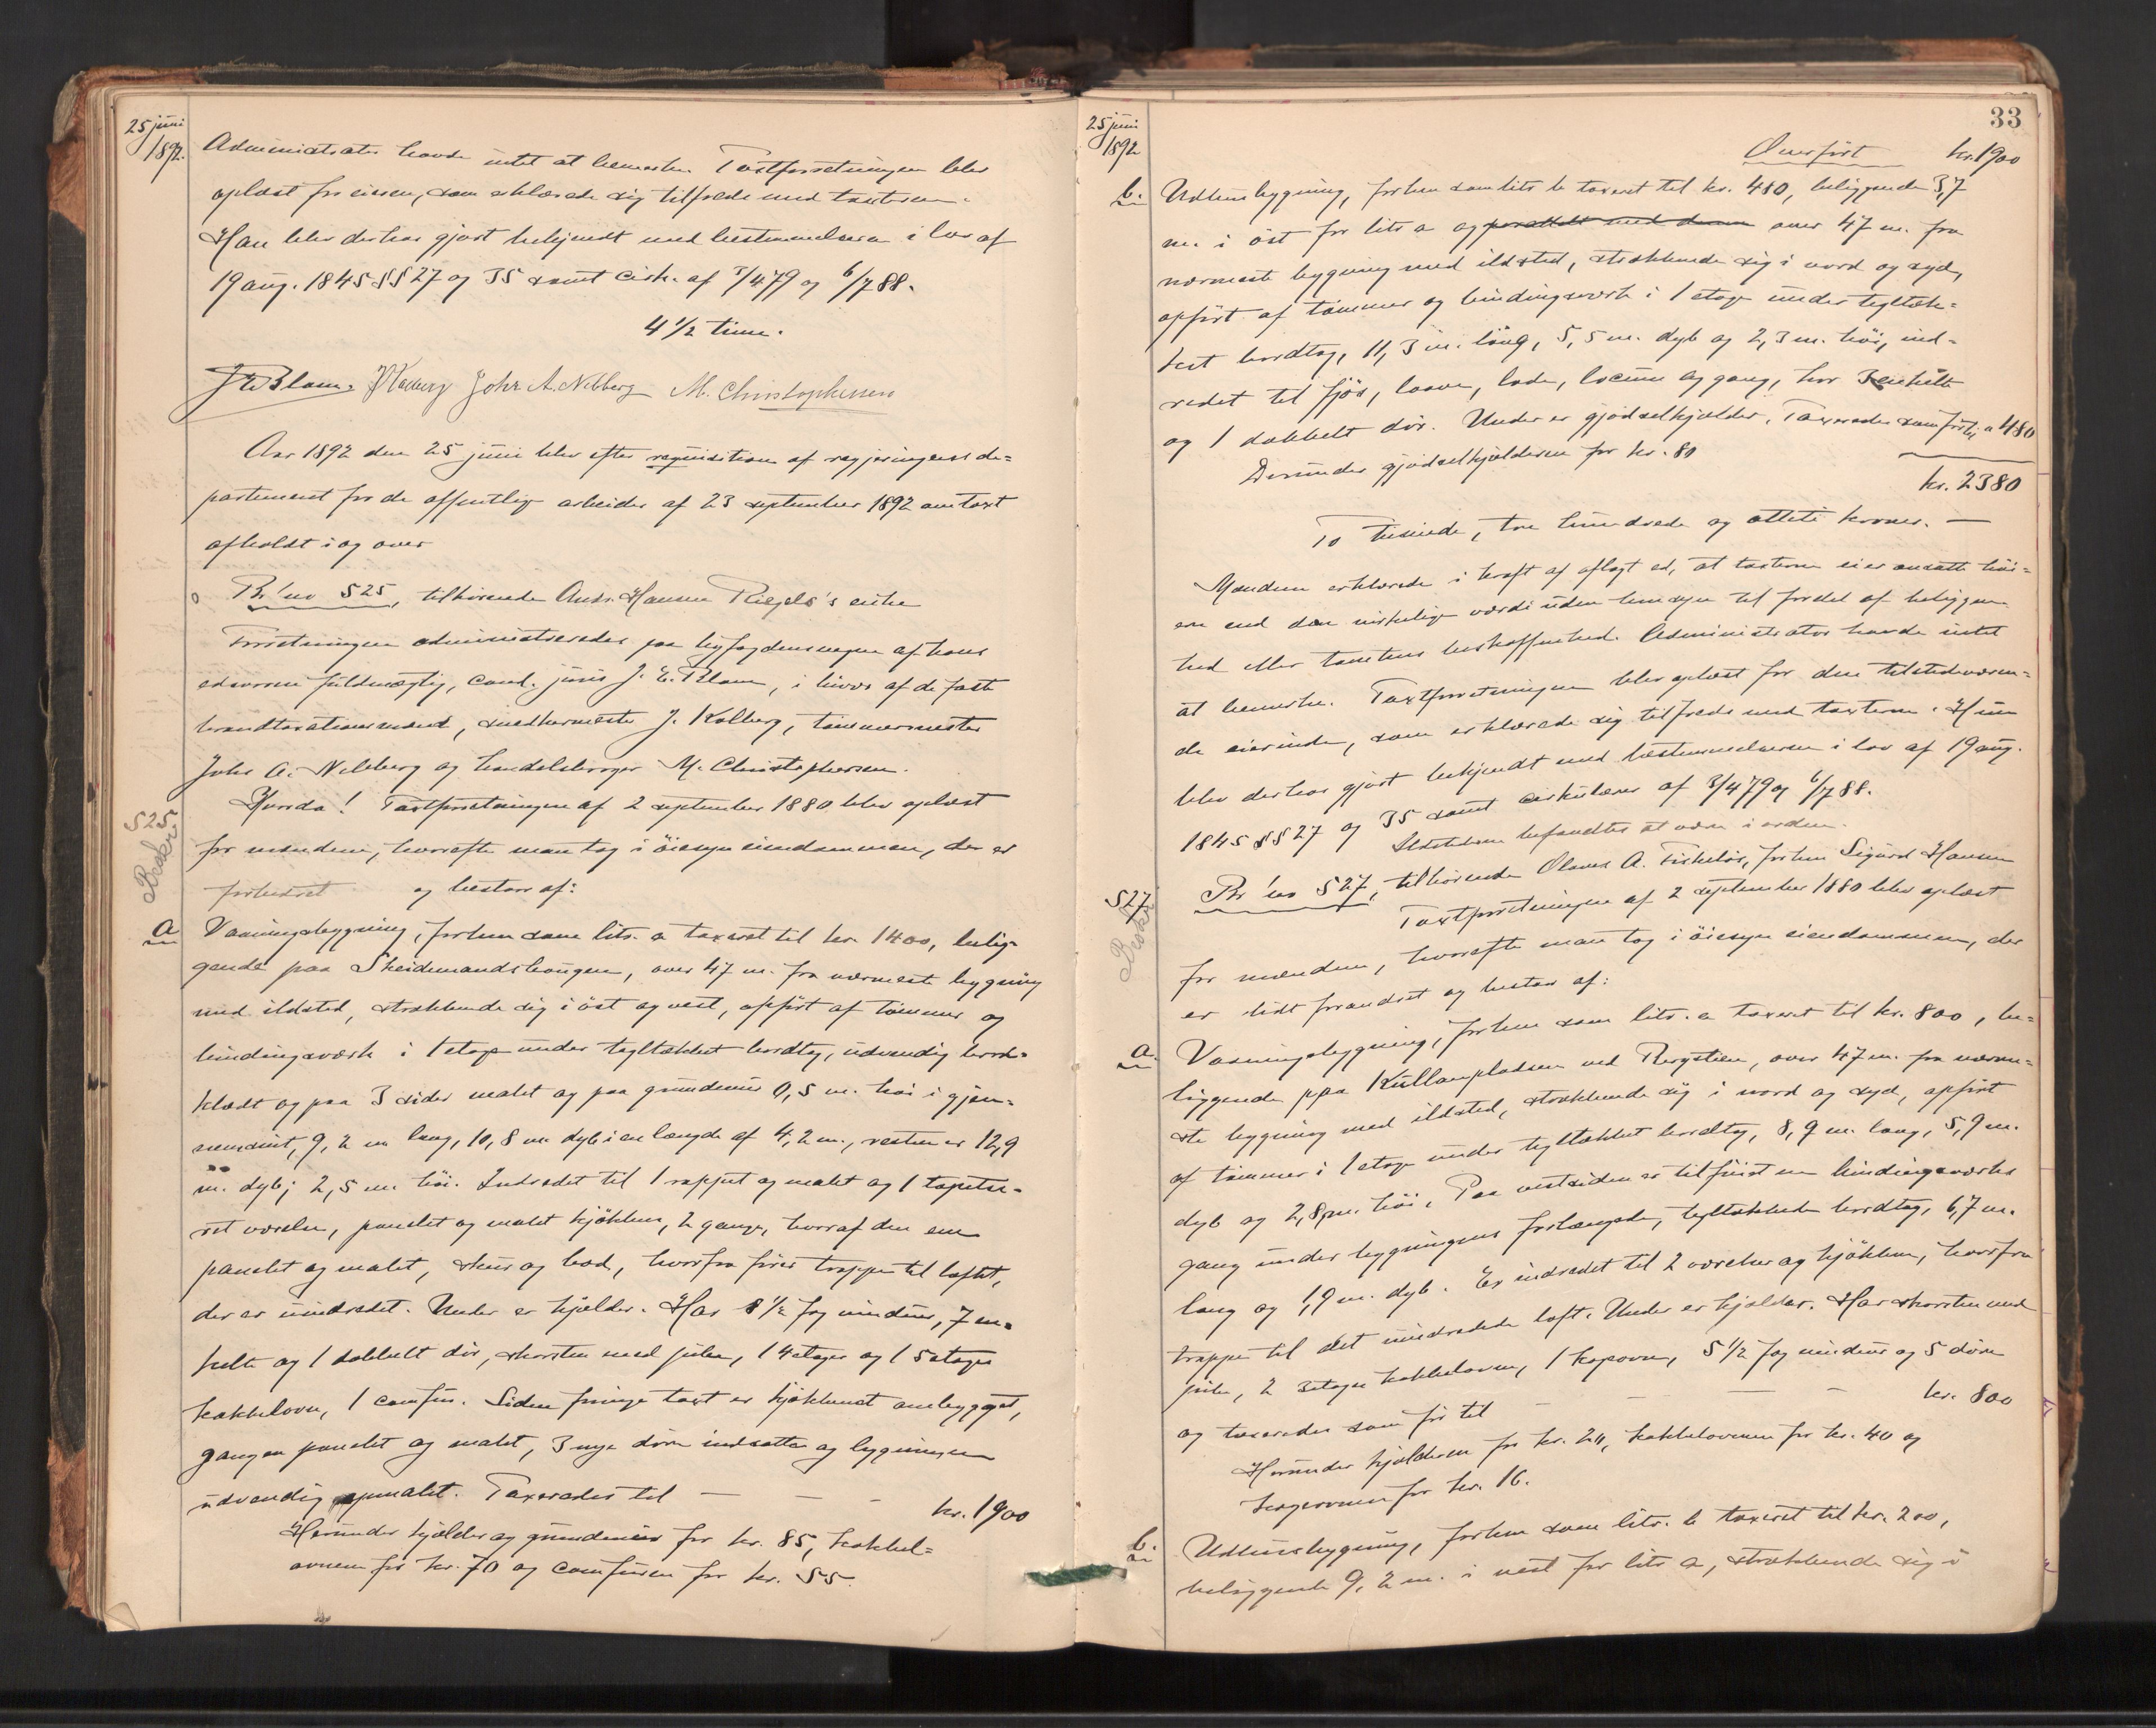 25 juni
1892.
Administrator havde intet at bemærke. Taxtforretningen blev
oplæst for eieren, som erklærede sig tilfreds med taxterne.
Han blev derhos gjort bekjendt med bestemmelserne i lov af
19 aug. 1845 §§ 27 og 35 samt cirk. af 3/4 79 og 6/7 88.
4 1/2 time.
J E Blom. J Kolberg Johs A. Nilberg M. Christophersen
Aar 1892 den 25 juni blev efter requisition af regjeringens de=
partement for de offentlige arbeider af 23 september 1892 omtaxt
afholdt i og over
Br. no 525, tilhörende Andr. Hansen Riegels's enke
Forretningen administreredes paa byfogdens vegne af hans
edsvorne fuldmægtig, cand. juris J. E. Blom, i hvervs af de faste
brandtaxationsmænd, snedkermester J. Kolberg, tömmermester
Johs A. Nilberg og handelsborger M. Christophersen.
Hvorda! Taxtforretningen af 2 september 1880 blev oplæst
525
for mændene, hvorefter man tog i öiesyn eiendommen, der er
forbedret og bestaar af:
a
Vaaningsbygning, forhen som litr. a taxeret til kr. 1400, belig=
gende paa Skeidemandshaugen, over 47 m. fra nærmeste bygning
med ildsted, strækkende sig i öst og vest, opfört af tömmer og
bindingsværk i 1 etage under tegltækket bordtag, udvendig bord=
klædt og paa 3 sider malet og paa grundmur 0,5 m. höi i gjen=
nemsnit, 9,2 m lang, 10,8 m dyb i en længde af 4,2 m., resten er 12,9
m. dyb; 2,5 m höi. Indredet til 1 rappet og malet og 1 tapetse=
ret værelse, panelet og malet kjökken, 2 gange, hvoraf den ene
panelet og malet, skuur og bod, hvorfra förer trappe til loftet,
der er uindredet. Under er kjelder. Har 8 1/2 fag vinduer, 7 en=
kelte og 1 dobbelt dör, skorsten med pibe, 1 4etages og 1 5etages
kakkelovn, 1 comfur. Siden forrige taxt er kjökkenet ombygget,
gangen panelet og malet, 3 nye döre indsatte og bygningen
udvendig opmalet. Taxeredes til — — - kr. 1900
Herunder kjelder og grundmur for kr. 85, kakkel=
ovnene for kr. 70 og comfuren for kr. 55.
33
25 juni
1892
Overfört kr. 1900
b.
Udhusbygning, forhen som litr b taxeret til kr. 480, beliggende 3,7
m. i öst for litr a og parallelt med denne over 47 m. fra
nærmeste bygning med ildsted, strækkende sig i nord og syd,
opfört af tömmer og bindingsværk i 1 etage under tegltæk=
ket bordtag, 11,3 m. lang, 5,5 m. dyb og 2,3 m. höi, ind=
redet til fjös, laave, lade, locum og gang, har 3 enkelte
og 1 dobbelt dör. Under er gjödselkjælder. Taxeredes som för til 480
Derunder gjödselkjælderen for kr. 80
kr. 2380
To tusinde, tre hundrede og otteti kroner. —
Mændene erklærede i kraft af aflagt ed, at taxterne ei er ansatte höi=
ere end den virkelige værdi uden hensyn til fordel af beliggen
hed eller tomtens beskaffenhed. Administrator havde intet
at bemærke. Taxtforretningen blev oplæst for den tilstedeværen=
de eierinde, som erklærede sig tilfreds med taxterne. Hun
blev derhos gjort bekjendt med bestemmelserne i lov af 19 aug.
1845 §§ 27 og 35 samt cirkulærer af 3/4 79 og 6/7 88.
Ildstederne befandtes at være i orden.
527
Br. no 527, tilhörende Olaves A. Fiskelös, forhen Sigurd Hansen
Taxtforretningen af 2 september 1880 blev oplæst
for mændene, hvorefter man tog i öiesyn eiendommen, der
er lidt forandret og bestaar af:
a.
Vaaningsbygning, forhen som litr. a taxeret til kr. 800, be=
liggende paa Kullanpladsen ved Bergstien, over 47 m. fra nærme=
ste bygning med ildsted, strækkende sig i nord og syd, opfört
af tömmer i 1 etage under tegltækket bordtag, 8,9 m. lang, 5,9 m.
dyb og 2,8 m. höi. Paa vestsiden er tilföiet en bindingsværks
gang under bygningens forlængede, tegltækkede bordtag, 6,7 m.
lang og 1,9 m. dyb. Er indredet til 2 værelser og kjökken, hvorfra
trappe til det uindredede loft. Under er kjelder. Har skorsten med
pibe, 2 3etages kakkelovne, 1 kogeovn, 5 1/2 fag vinduer og 5 döre
og taxeredes som för til — — - kr. 800
Herunder kjelderen for kr. 20, kakkelovnene for kr. 40 og
kogeovnen for kr. 16.
b.
Udhusbygning, forhen som litr. b taxeret til kr. 200,
beliggende 9,2 m. i vest for litr a, strækkende sig i